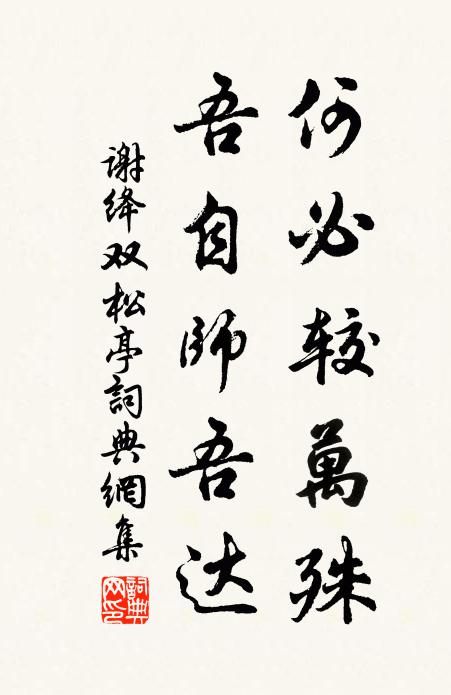 何必较萬殊
吾自師吾达
谢绛双松亭詞典網集
詞典网印